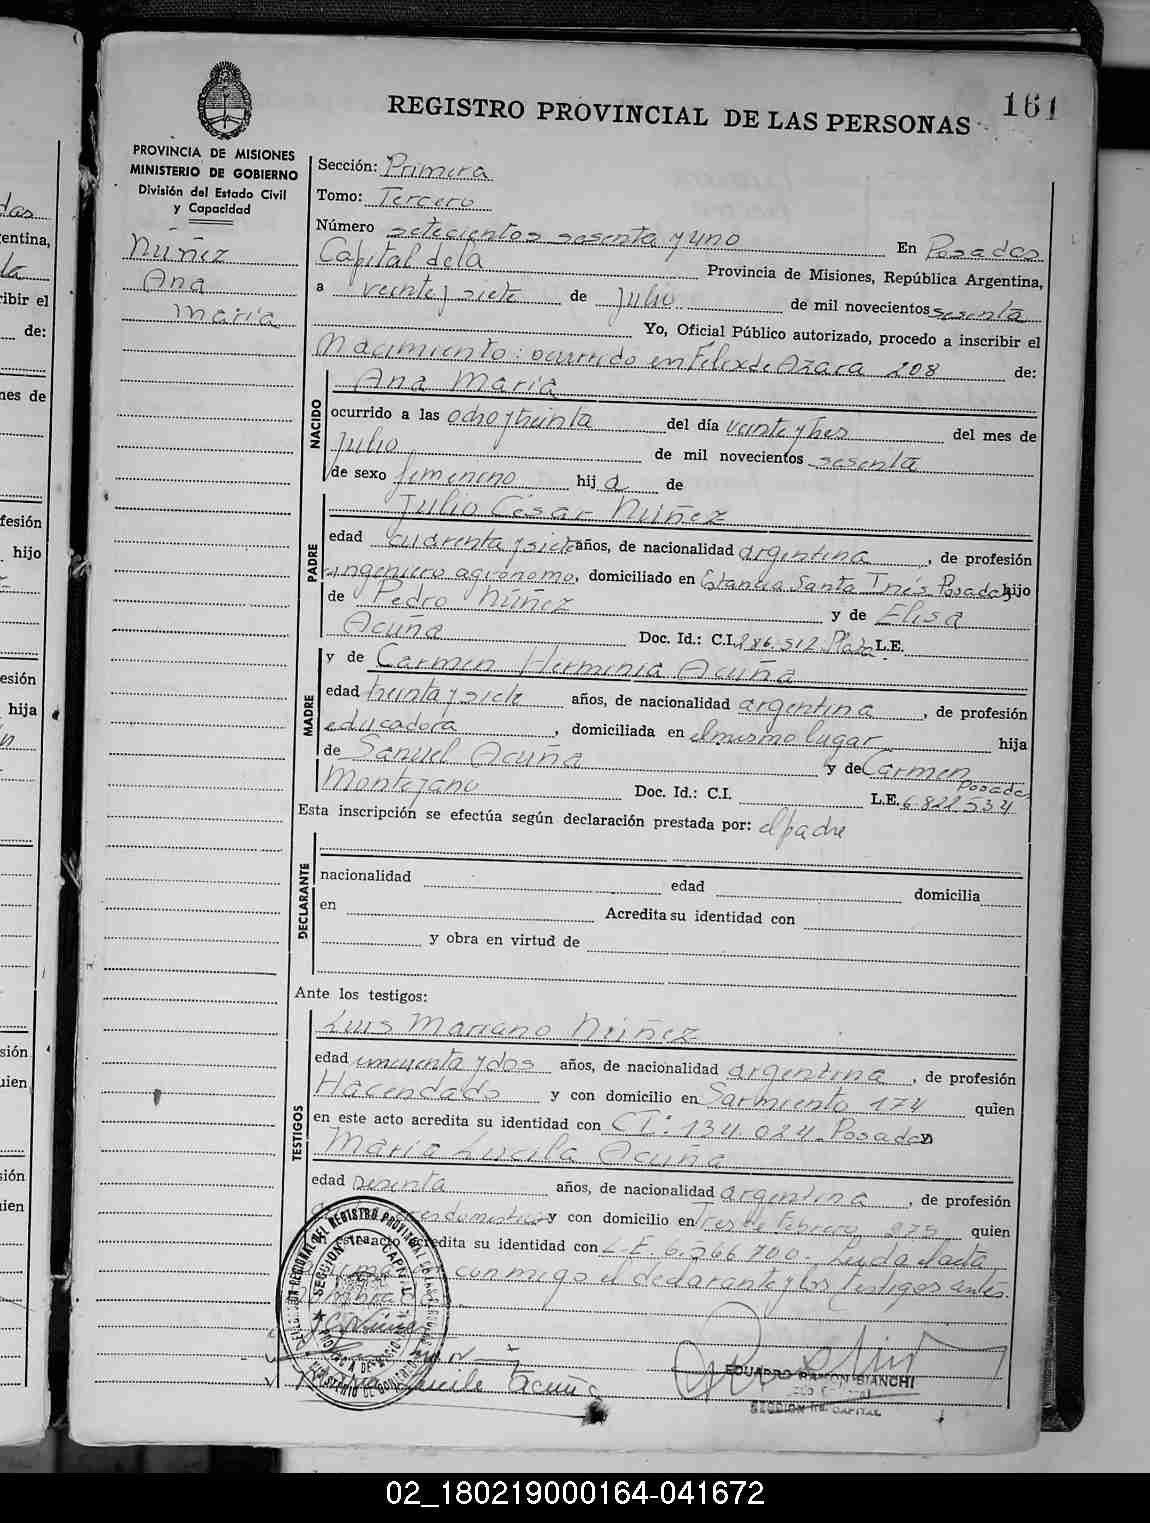 161
REGISTRO PROVINCIAL DE LAS PERSONAS
PROVINCIA DE MISIONES
MINISTERIO DE GOBIERNO
División del Estado Civil
y Capacidad
Núñez
Ana
María
Sección: Primera
Tomo: Tercero
Número setecientos sesenta y uno En Posadas
Capital de la Provincia de Misiones, República Argentina,
a veinte y siete de Julio de mil novecientos sesenta
Yo, Oficial Público autorizado, procedo a inscribir el
Nacimiento: ocurrido en Felix de Azara 208 de:
NACIDO
Ana María
ocurrido a las ocho y treinta del día veinte y tres del mes de
Julio de mil novecientos sesenta
de sexo femenino hij a de
PADRE
Julio César Núñez
edad cuarenta y siete años, de nacionalidad argentina, de profesión
ingeniero agrónomo, domiciliado en Estancia Santa Inés Posadas hijo
de Pedro Núñez y de Elisa
Acuña Doc. Id.: C.I. 286.512 L.E.
MADRE
y de Carmen Herminia Acuña
edad treinta y siete años, de nacionalidad argentina, de profesión
educadora, domiciliada en el mismo lugar hija
de Samuel Acuña y de Carmen
Montejano Doc. Id.: C.I. L.E. 6.822.534 Posadas
Esta inscripción se efectúa según declaración prestada por: el padre
DECLARANTE
nacionalidad edad domicilia
en Acredita su identidad con
y obra en virtud de
Ante los testigos:
TESTIGOS
Luis Mariano Núñez
edad cincuenta y dos años, de nacionalidad argentina, de profesión
Hacendado y con domicilio en Sarmiento 174 quien
en este acto acredita su identidad con CI: 134.024 - Posadas y
María Lucila Acuña
edad sesenta años, de nacionalidad argentina, de profesión
y con domicilio en Tres de Febrero 275 quien
acto acredita su identidad con L.E. 6.366.700 - Leyda el acta
conmigo el declarante y los testigos antes
Lucila Acuña
EDUARDO RAMON BIANCHI
SECCION 1ra. CAPITAL
02_180219000164-041672